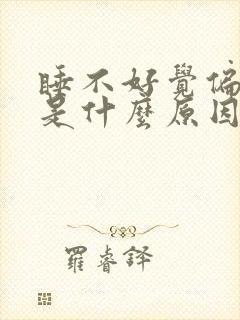 睡不好覺偏
是什麼原因
羅睿鐸